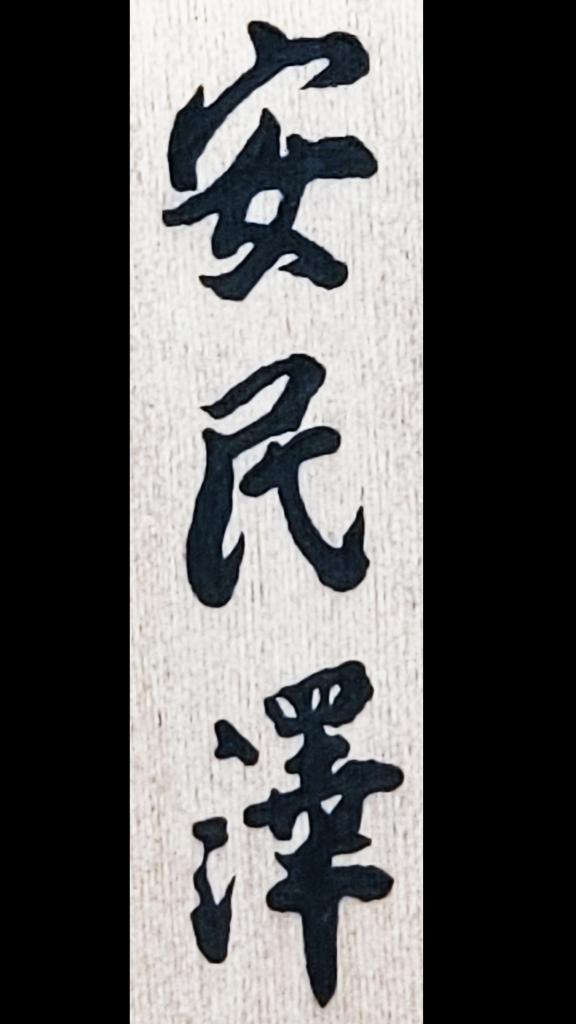 安民澤